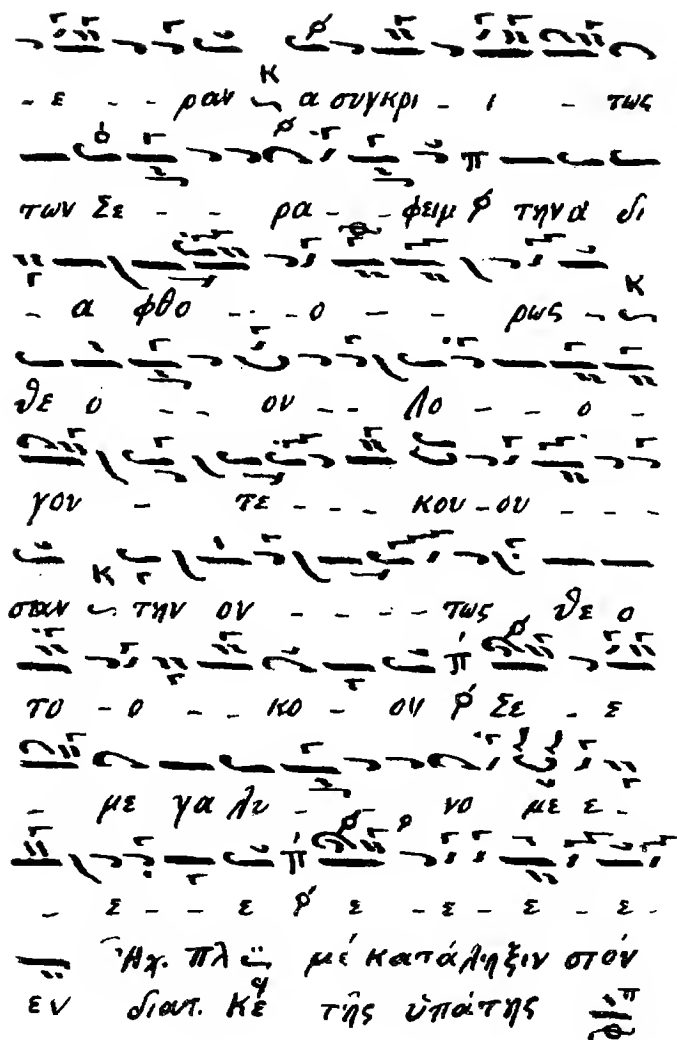 - ε - - ραν κ α συγκρι - ι - τως
των Σε - - ρα - - φειμ την α δι
- α φθο - - - ο - - ρως - κ
θε ο - - - ον - - Λο - - - ο -
γον - τε - - - κου - ου - - - -
σαν κ την ον - - - - τως θε ο
το - ο - - κο - ον Σε - ε
- με γα λυ - νο με ε -
- ε - - ε ε - ε - ε - ε -
Ἦχ. πλ μέ κατάληξιν στόν
εν διατ. Κε τῆς ὑπάτης π